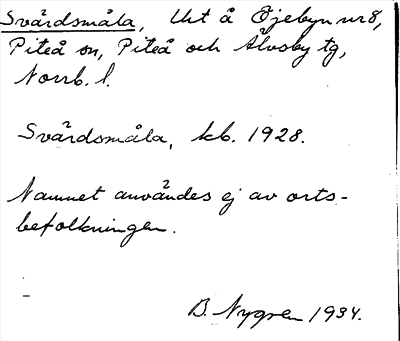 Svärdsmåla, Utt å Öjebyn nr 8,
Piteå sn, Piteå och Älvsby tg,
Norrb. l.
Svärdsmåla, kb. 1928.
Namnet användes ej av orts-
befolkningen.
B. Nygren 1934.